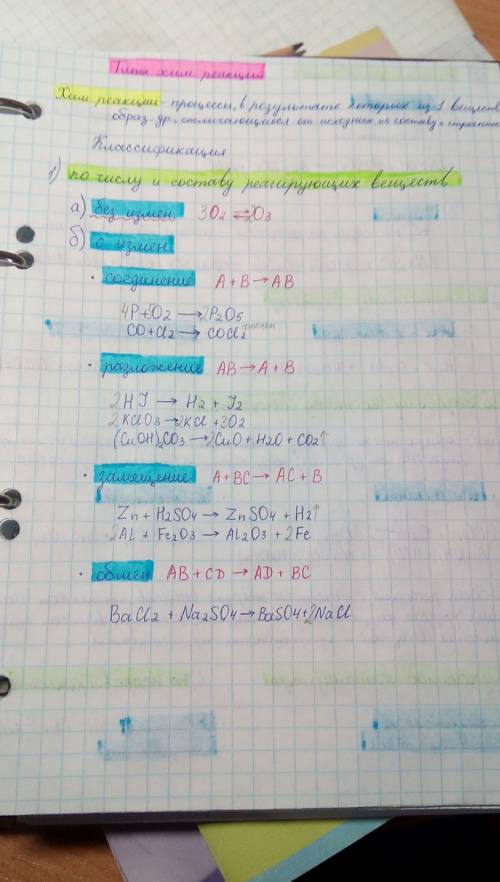 Типы хим. реакций
Хим. реакции - процессы, в результате которых из 1 веществ
образ. др., отличающиеся от исходных по составу и строению
Классификация
1) по числу и составу реагирующих веществ
а) без измен. 3O2 ⇄ 2O3
б) с измен.
· соединение A + B → AB
4P + 5O2 → 2P2O5
CO + Cl2 → COCl2 фосген
· разложение AB → A + B
2HJ → H2 + J2
2KClO3 → 2KCl + 3O2
(CuOH)2CO3 → 2CuO + H2O + CO2↑
· замещение A + BC → AC + B
Zn + H2SO4 → ZnSO4 + H2↑
2Al + Fe2O3 → Al2O3 + 2Fe
· обмен AB + CD → AD + BC
BaCl2 + Na2SO4 → BaSO4 + 2NaCl